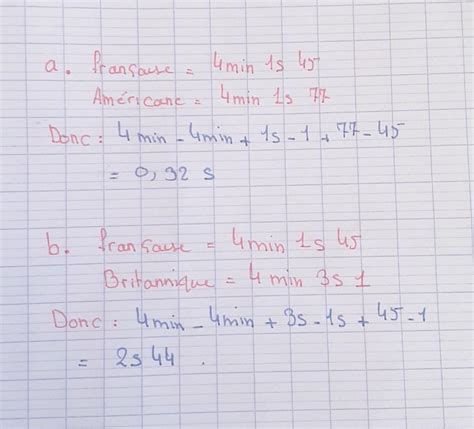 a. française = 4min 1s 45
Américane = 4min 1s 77
Donc : 4min - 4min + 1s - 1 + 77 - 45
= 0,32 s
b. française = 4min 1s 45
Britannique = 4 min 3s 1
Donc : 4min - 4min + 3s - 1s + 45 - 1
= 2s 44 .